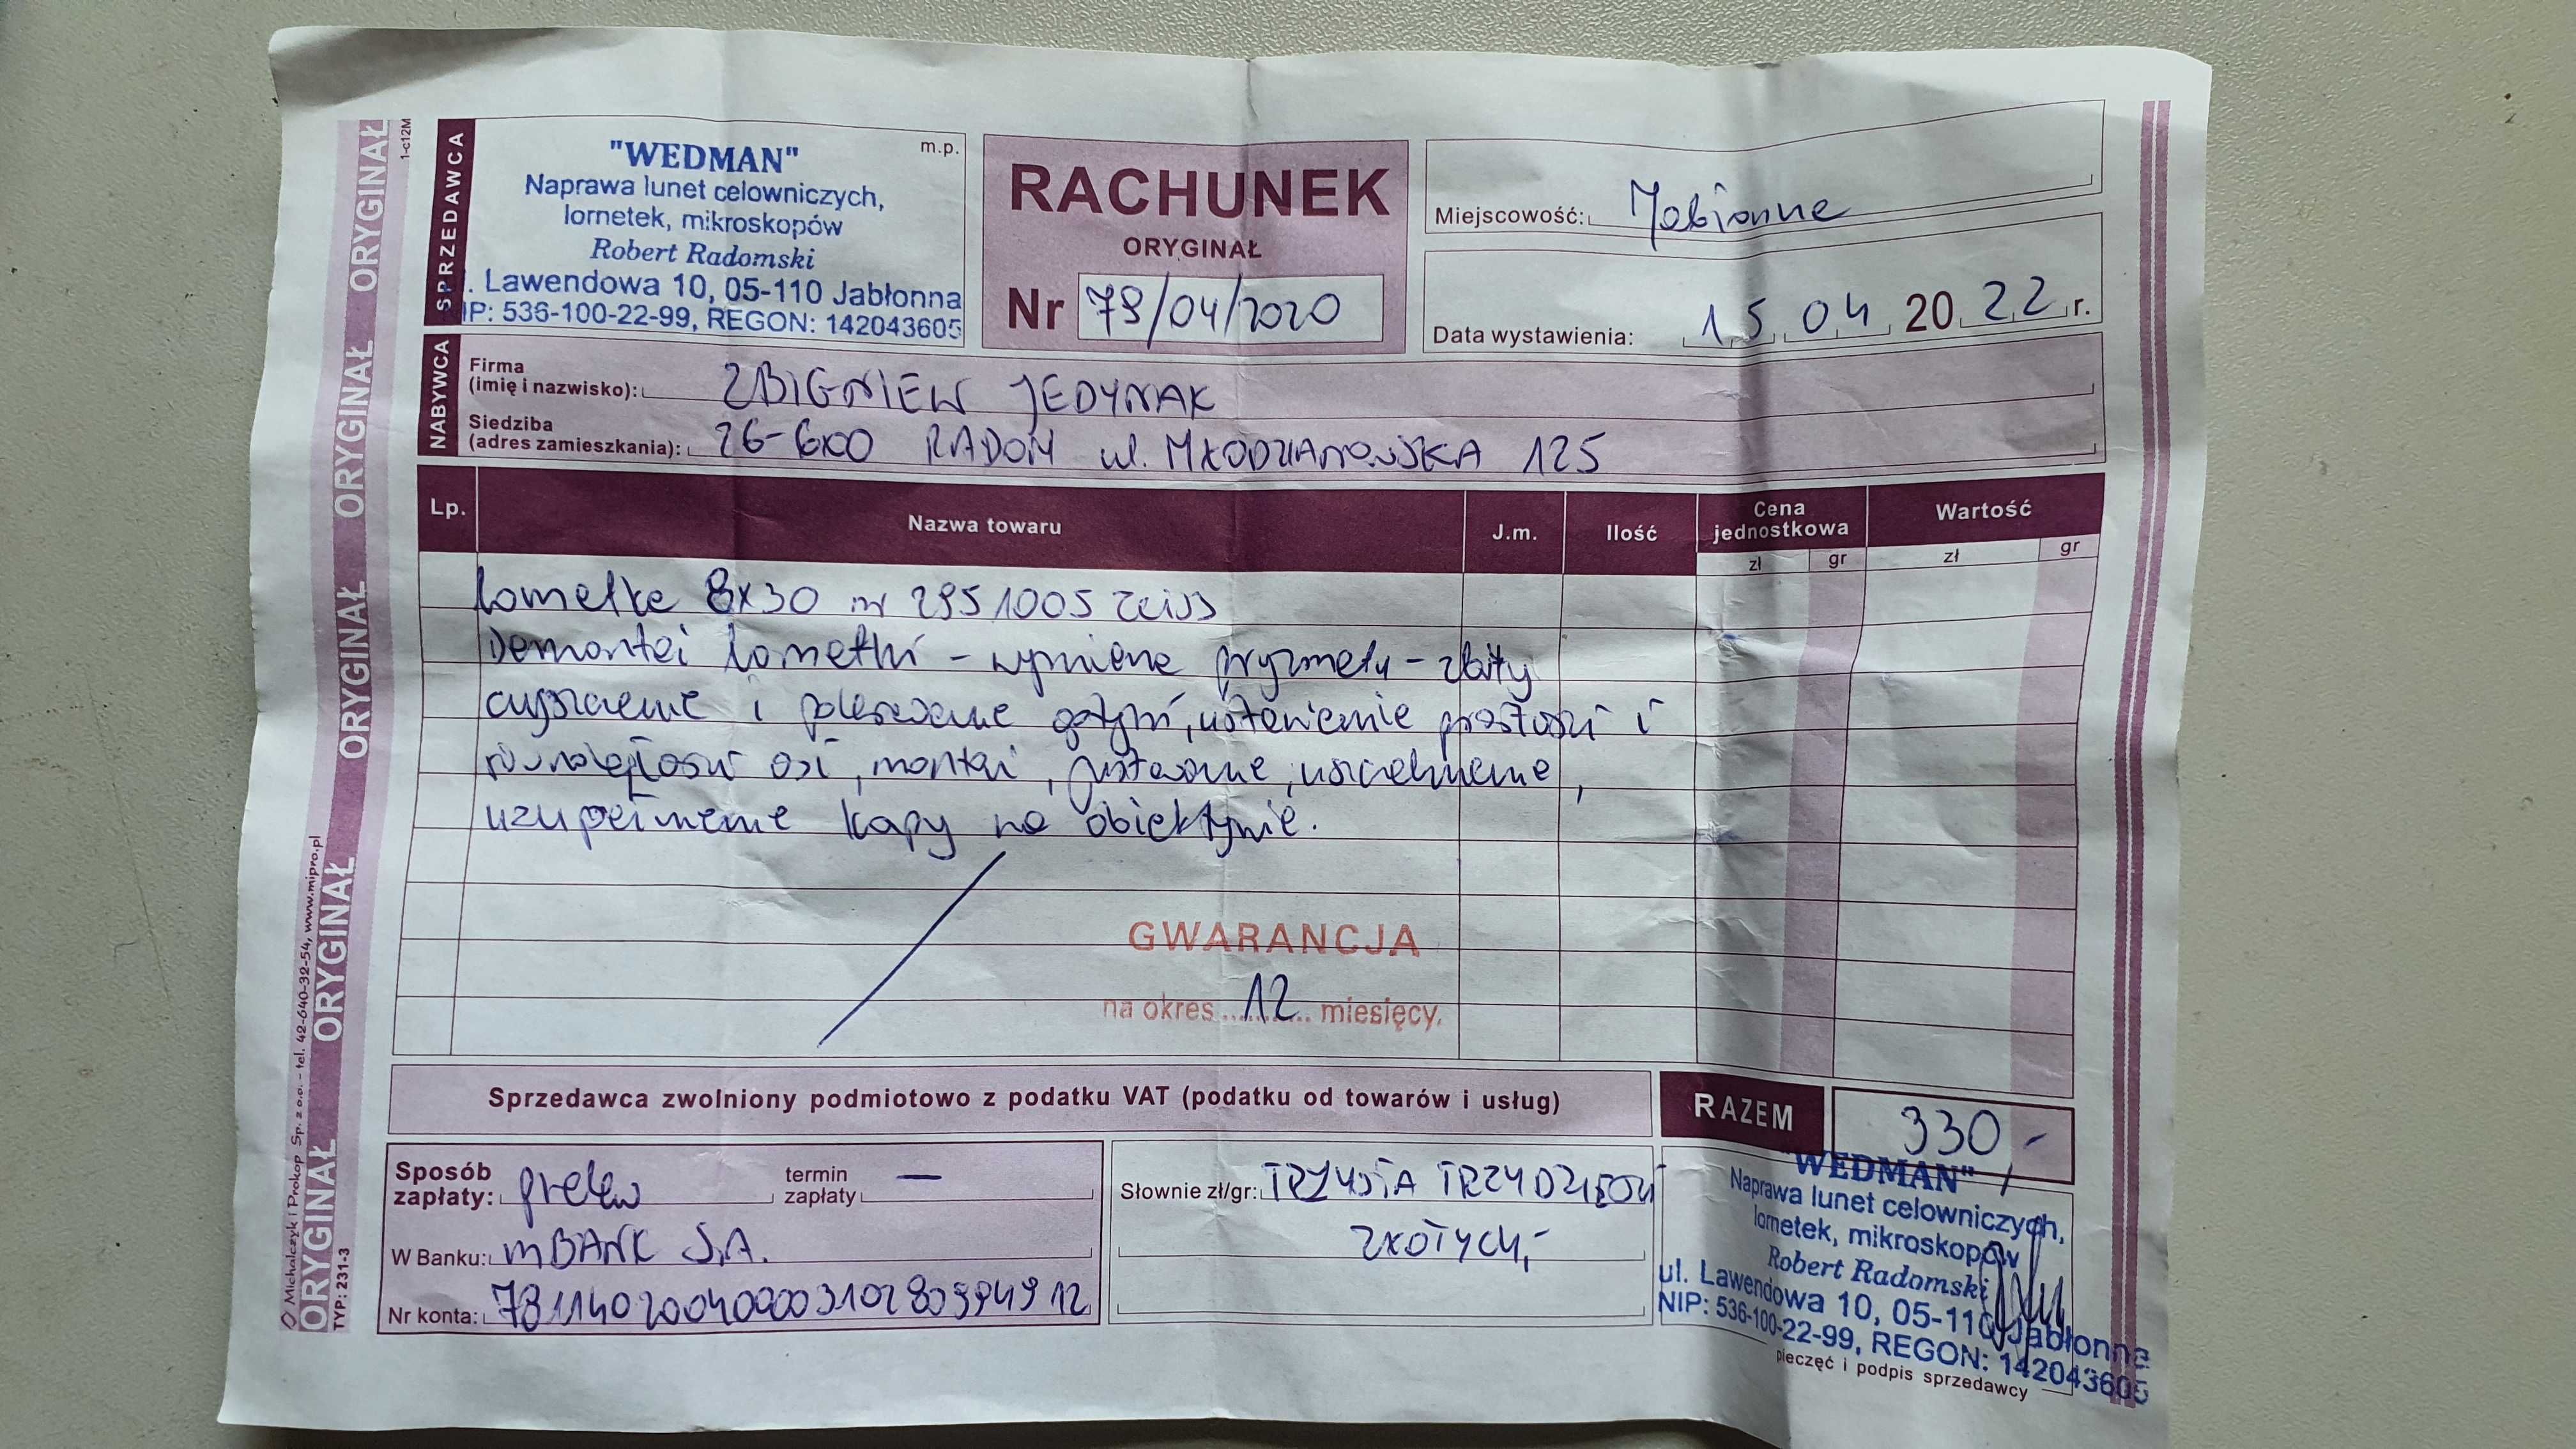 ORYGINAŁ ORYGINAŁ ORYGINAŁ ORYGINAŁ ORYGINAŁ
1-c12M
Michalczyk i Prokop Sp. z o.o. – tel. 42-640-32-54, www.mipro.pl
TYP: 231-3
SPRZEDAWCA
"WEDMAN"
m.p.
Naprawa lunet celowniczych,
lornetek, mikroskopów
Robert Radomski
. Lawendowa 10, 05-110 Jabłonna
IP: 536-100-22-99, REGON: 142043605
RACHUNEK
ORYGINAŁ
Nr 79/04/2020
Miejscowość: Jabłonna
Data wystawienia: 15 04 2022 r.
NABYWCA
Firma
(imię i nazwisko): ZBIGNIEW JEDYNAK
Siedziba
(adres zamieszkania): 26-600 RADOM ul. MŁODZIANOWSKA 125
Lp. Nazwa towaru J.m. Ilość Cena jednostkowa Wartość
zł gr zł gr
Lornetka 8x30 nr 2951005 Zeiss
Demontaż lornetki - wymiana pryzmatu - zbity
czyszczenie i polerowanie optyki, ustawienie prostości i
równoległości osi, montaż, justowanie, uszczelnienie,
uzupełnienie kapy na obiektywie.
GWARANCJA
na okres 12 miesięcy.
Sprzedawca zwolniony podmiotowo z podatku VAT (podatku od towarów i usług)
RAZEM 330,-
Sposób
zapłaty: przelew termin
zapłaty —
W Banku: mBANK S.A.
Nr konta: 78114020040000310280994912
Słownie zł/gr: TRZYSTA TRZYDZIEŚCI
ZŁOTYCH,-
"WEDMAN"
Naprawa lunet celowniczych,
lornetek, mikroskopów
Robert Radomski
ul. Lawendowa 10, 05-110 Jabłonna
NIP: 536-100-22-99, REGON: 142043605
pieczęć i podpis sprzedawcy